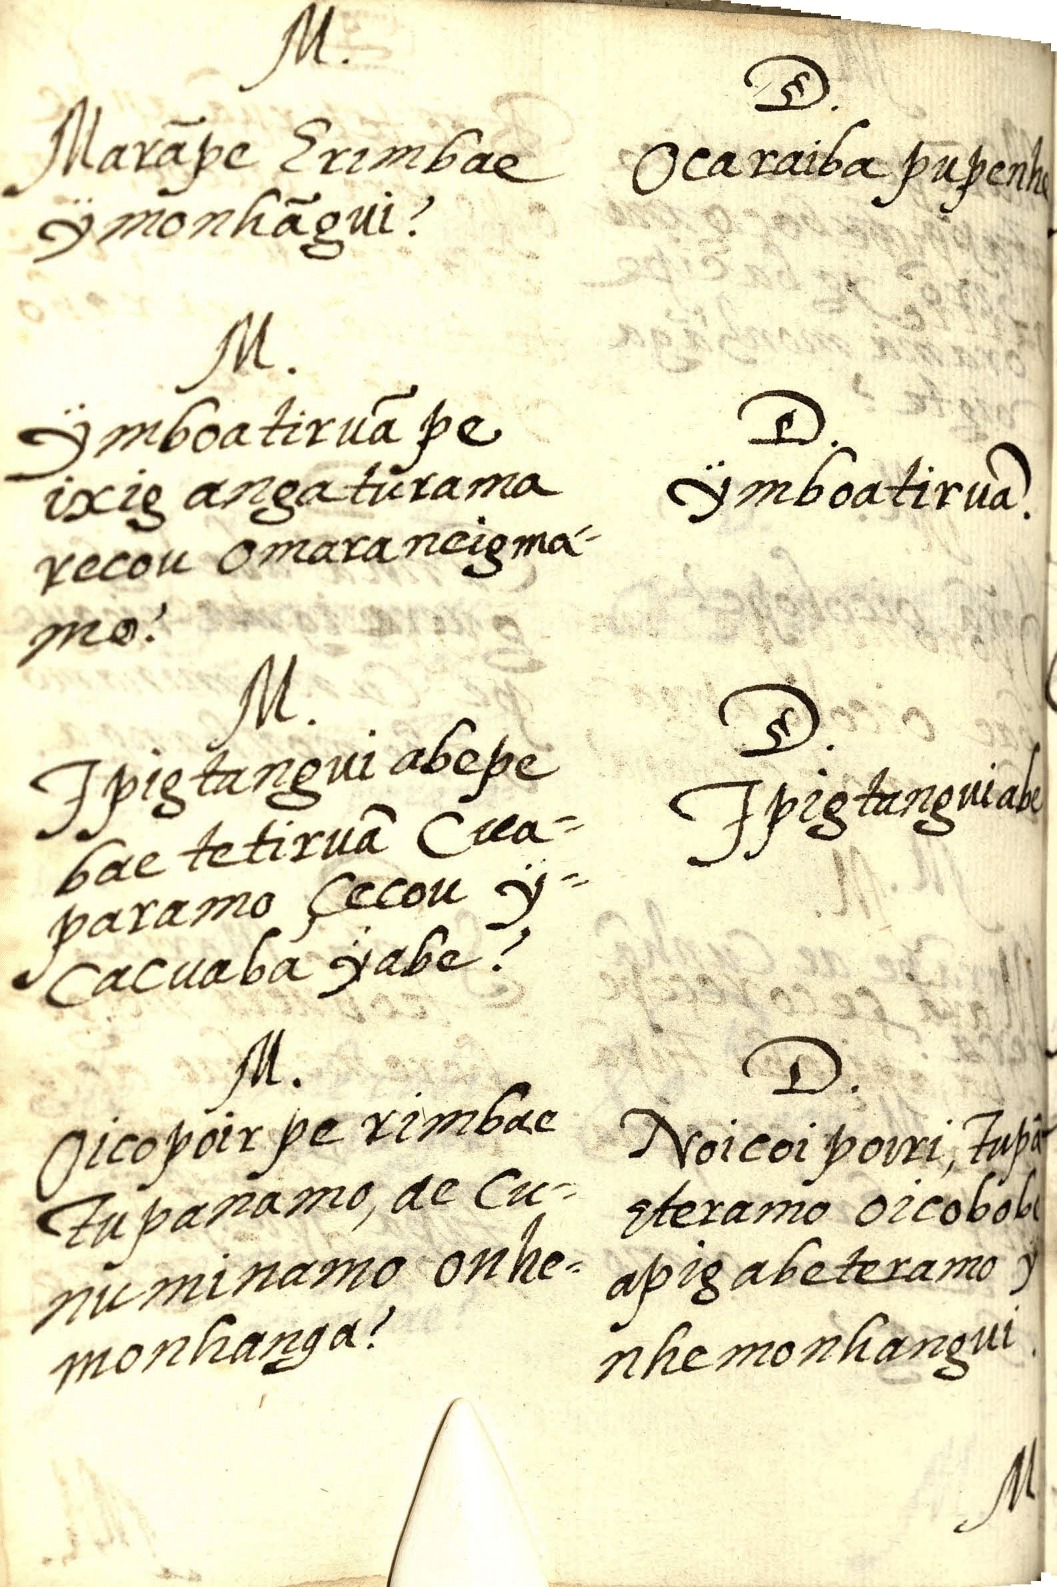 M.
Marãpe Erimbae
ÿmonhãgui?
D.
Ocaraiba pupenhe
M.
ÿmboatiruã pe
ixig angaturama
recou omaraneigma-
mo?
D.
ÿmboatiruã.
M.
Ipigtangui abepe
bae tetiruã Cua-
paramo çecou ÿ-
cacuaba ÿabe?
D.
Ipigtangui abe
M.
Oicopoir pe rimbae
Tupanamo, ae Cu-
numinamo onhe-
monhanga?
D.
Noicoi poiri, Tupã
eteramo oicobobe
apigabeteramo ÿ
nhemonhangui.
M